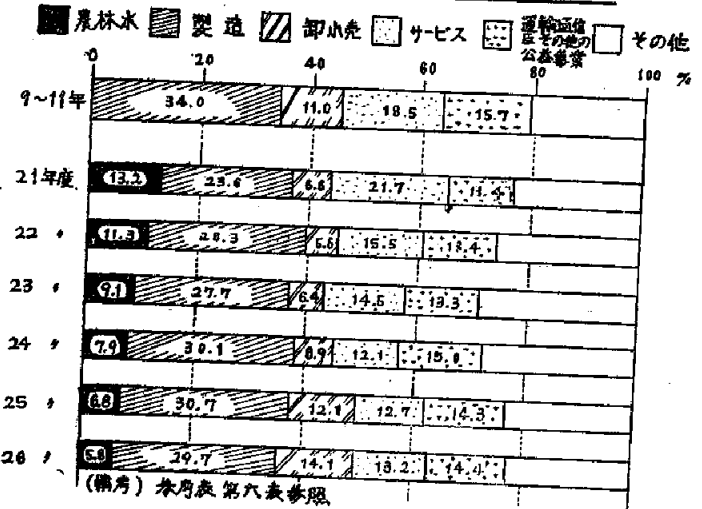 農林水 製造 卸小売 サービス 運輸通信及その他の公益事業 その他
0 20 40 60 80 100 %
9~11年 34.0 11.0 18.5 15.7
21年度 13.2 23.6 6.8 21.7 11.4
22 〃 11.3 28.3 5.8 15.5 13.4
23 〃 9.1 27.7 6.4 14.5 13.3
24 〃 7.9 30.1 6.9 12.1 15.0
25 〃 6.8 30.7 12.1 12.7 14.3
26 〃 5.8 29.7 14.1 13.2 14.4
(備考) 附表第六表参照